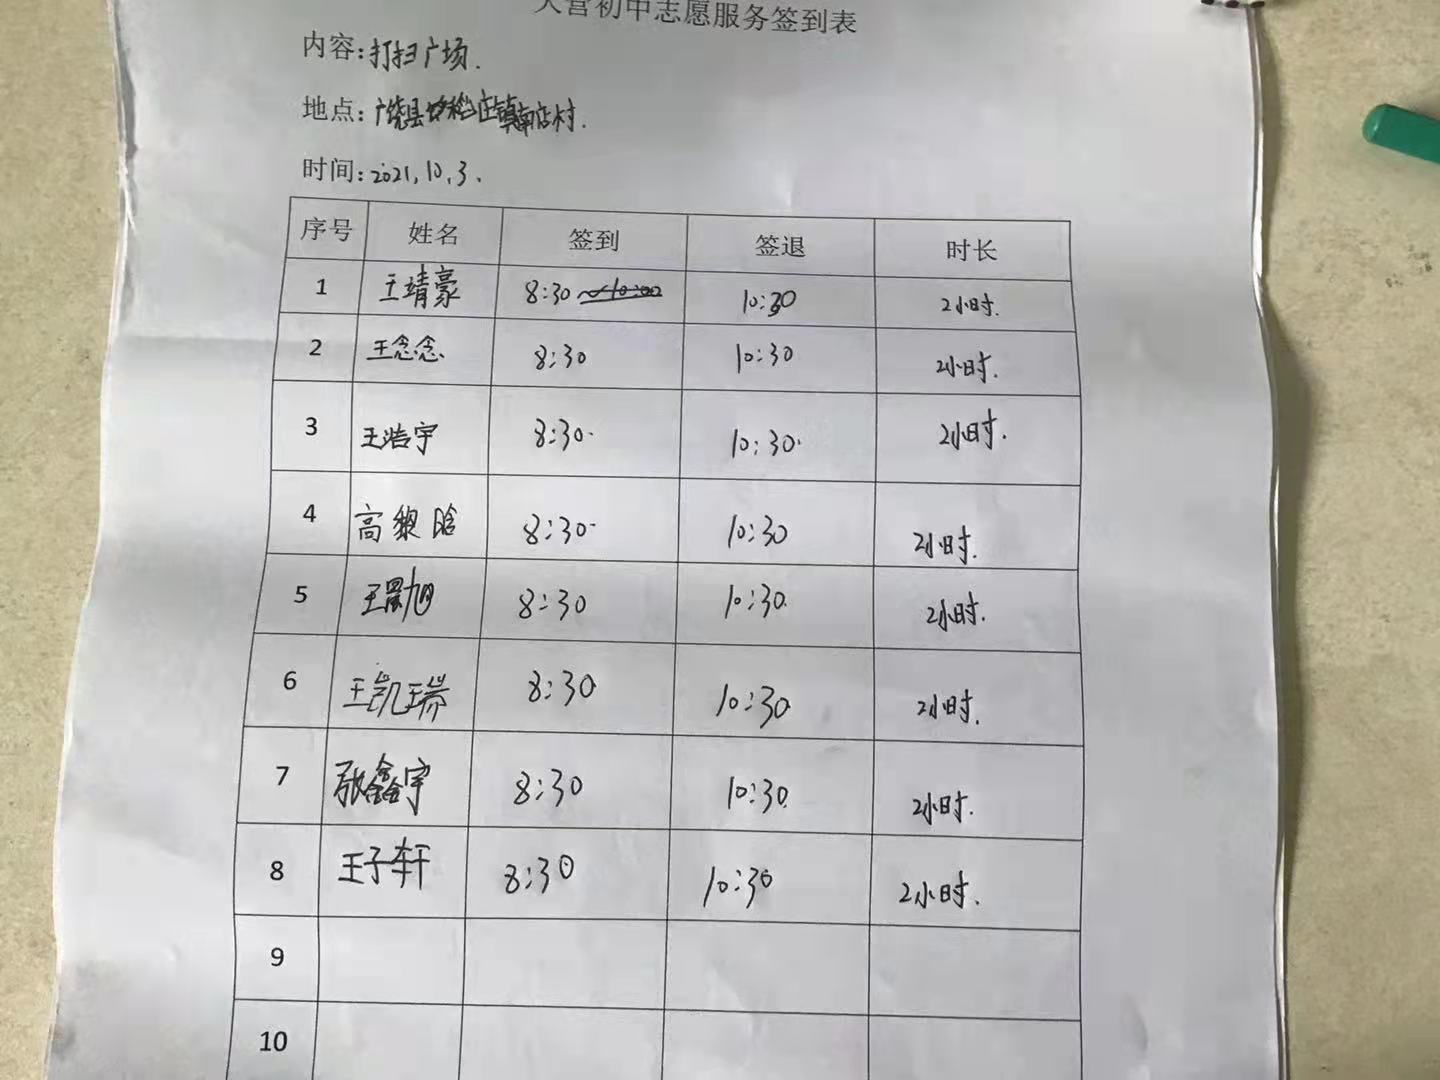 大营初中志愿服务签到表
内容:打扫广场.
地点:广饶县 庄镇南店村.
时间:2021.10.3.
序号 姓名 签到 签退 时长
1 王靖豪 8:30 ~10:00 10:30 2小时.
2 王念念 8:30 10:30 2小时.
3 王浩宇 8:30. 10:30. 2小时.
4 高貌晗 8:30. 10:30 2小时.
5 王景旭 8:30 10:30. 2小时.
6 王凯瑞 8:30 10:30 2小时.
7 张鑫宇 8:30 10:30. 2小时.
8 王子轩 8:30 10:30 2小时.
9
10